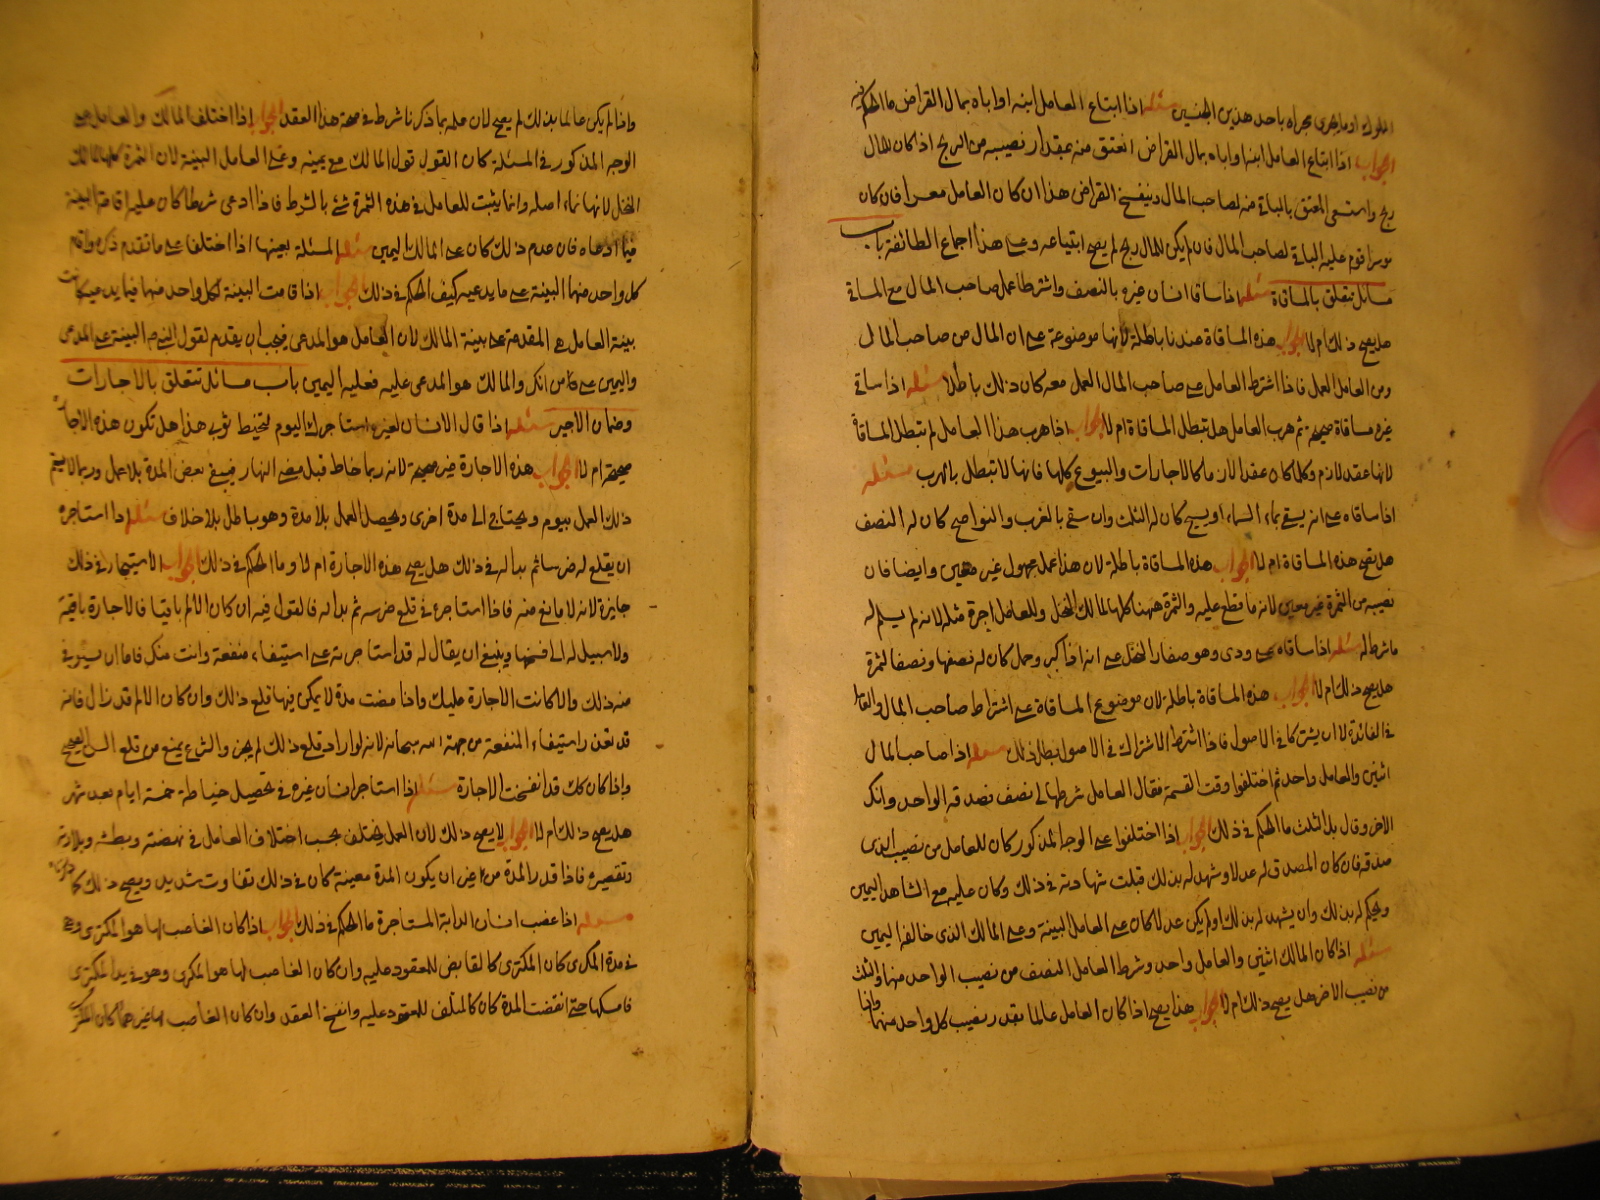 الملوك او ما يجرى مجراه باحد هذين الجنسين مسئلة اذا ابتاع العامل ابنه او اباه بمال القراض ما الحكم فيه
الجواب اذا ابتاع العامل ابنه او اباه بمال القراض انعتق منه بمقدار نصيبه من الربح اذا كان للمال
ربح واستسعى المعتق بالباقي منه لصاحب المال وينفسخ القراض هذا ان كان العامل معسرا فان كان
موسرا قوم عليه الباقي لصاحب المال فان لم يكن للمال ربح لم يصح ابتياعه وعلى هذا اجماع الطائفة باب
مسائل تتعلق بالمساقاة مسئلة اذا ساقا انسان غيره بالنصف واشترط عمل صاحب المال مع المساقي
هل يصح ذلك ام لا الجواب هذه المساقاة عندنا باطلة لانها موضوعة على ان المال من صاحب المال
ومن العامل العمل فاذا اشترط العامل على صاحب المال العمل معه كان ذلك باطلا مسئلة اذا ساقى
غيره مساقاة صحيحة ثم هرب العامل هل تبطل المساقاة ام لا الجواب اذا هرب هذا العامل لم تبطل المساقاة
لانها عقد لازم وكلما كان عقد لازما كالاجارات والبيوع كلها فانها لا تبطل بالهرب مسئلة
اذا ساقاه على انه يسقي بماء السماء او سيح كان له الثلث وان سقى بالغرب والنواضح كان له النصف
هل يصح هذه المساقاة ام لا الجواب هذه المساقاة باطلة لان هذا عمل مجهول غير معين وايضا فان
نصيبه من الثمرة غير معين لانه ما قطع عليه والثمرة ههنا كلها لمالك النخل وللعامل اجرة مثله لانه لم يسلم له
ما شرط له مسئلة اذا ساقاه على ودي وهو صغار النخل على انه اذا كبر وحمل كان له نصفها ونصف الثمرة
هل يصح ذلك ام لا الجواب هذه المساقاة باطلة لان موضوع المساقاة على اشتراط صاحب المال والعامل
في الفائدة لا ان يشتركا في الاصول فاذا اشترط الاشتراك في الاصول بطل ذلك مسئلة اذا صاحب المال
اثنين والعامل واحد ثم اختلفوا وقت القسمة فقال العامل شرطها لي نصف فصدقه الواحد وانكر
الاخر وقال بل الثلث ما الحكم في ذلك الجواب اذا اختلفوا على الوجه المذكور كان للعامل من نصيب الذى
صدقه فان كان المصدق له عدلا وشهد له بذلك قبلت شهادته في ذلك وكان عليه مع الشاهد اليمين
ويحكم له بذلك وان يشهد له بذلك او لم يكن عدلا كان على العامل البينة وعلى المالك الذى خالفه اليمين
مسئلة اذا كان المالك اثنين والعامل واحد وشرط العامل النصف من نصيب الواحد منهما والثلث
من نصيب الاخر هل يصح ذلك ام لا الجواب هذا يصح اذا كان العامل عالما بقدر نصيب كل واحد منهما واذا
واذا لم يكن عالما بذلك لم يصح لان علمه بما ذكرنا شرط في صحة هذا العقد الجواب اذا اختلف المالك والعامل على
الوجه المذكور في المسئلة كان القول قول المالك مع يمينه وعلى العامل البينة لان الثمرة كلها لمالك
النخل لانها نماء اصله وانما يثبت للعامل في هذه الثمرة شئ بالشرط فاذا ادعى شرطا كان عليه اقامة البينة
فيما ادعاه فان عدم ذلك كان على المالك اليمين مسئلة المسئلة بعينها اذا اختلفا على ما تقدم ذكره واقام
كل واحد منهما البينة على ما يدعيه كيف الحكم في ذلك الجواب اذا قامت البينة لكل واحد منهما فيما يدعيه كانت
بينة العامل هي المقدمة على بينة المالك لان العامل هو المدعى فيجب ان يقدم لقول النبي ص البينة على المدعى
واليمين على من انكر والمالك هو المدعى عليه فعليه اليمين باب مسائل تتعلق بالاجارات
وضمان الاجير مسئلة اذا قال الانسان لغيره استاجرتك اليوم لتخيط ثوبى هذا هل تكون هذه الاجارة
صحيحة ام لا الجواب هذه الاجارة غير صحيحة لانه ربما خاط قبل مضى النهار فيبقى بعض المدة بلا عمل وربما لا يتم
ذلك العمل بيوم ويحتاج الى مدة اخرى ويحصل العمل بلا مدة وهو باطل بلا خلاف مسئلة اذا استاجره
ان يقلع له ضرسا ثم بدا له في ذلك هل يصح هذه الاجارة ام لا وما الحكم في ذلك الجواب الاستيجار في ذلك
جايزة لانه لا مانع منه فاذا استاجره في قلع ضرسه ثم بدا له فالقول فيه ان كان الالم باقيا فالاجارة باقية
ولا سبيل له الى فسخها وينبغى ان يقال له قد استاجرته على استيفاء منفعة وانت متمكن فاما ان يستوفى
منه ذلك والا كانت الاجارة عليك واذا مضت مدة لا يمكن فيها قلع ذلك وان كان الالم قد زال فانه
قد تعذر استيفاء المنفعة من جهة الله سبحانه لانه لو اراد قلع ذلك لم يجز والشرع يمنع من قلع السن الصحيح
واذا كان كك قد انفسخت الاجارة مسئلة اذا استاجر انسان غيره في تحصيل خياطة خمسة ايام بعد شهر
هل يصح ذلك ام لا الجواب لا يصح ذلك لان العمل يختلف بحسب اختلاف العامل في نهضته وبطئه وبلادته
وتقصيره فاذا قدر المدة من غير ان يكون المدة معينة كان في ذلك تفاوت شديد ويصح ذلك كما ذكرناه
مسئلة اذا غصب انسان الدابة المستاجرة ما الحكم في ذلك الجواب اذا كان الغاصب لها هو المكترى وهى
في مدة المكرى كان المكترى كالقابض للمعقود عليه وان كان الغاصب لها هو المكرى وهو في يد المكترى
فامسكها حتى انقضت المدة كان كالمتلف للمعقود عليه وانفسخ العقد وان كان الغاصب لها غيرهما كان المكترى